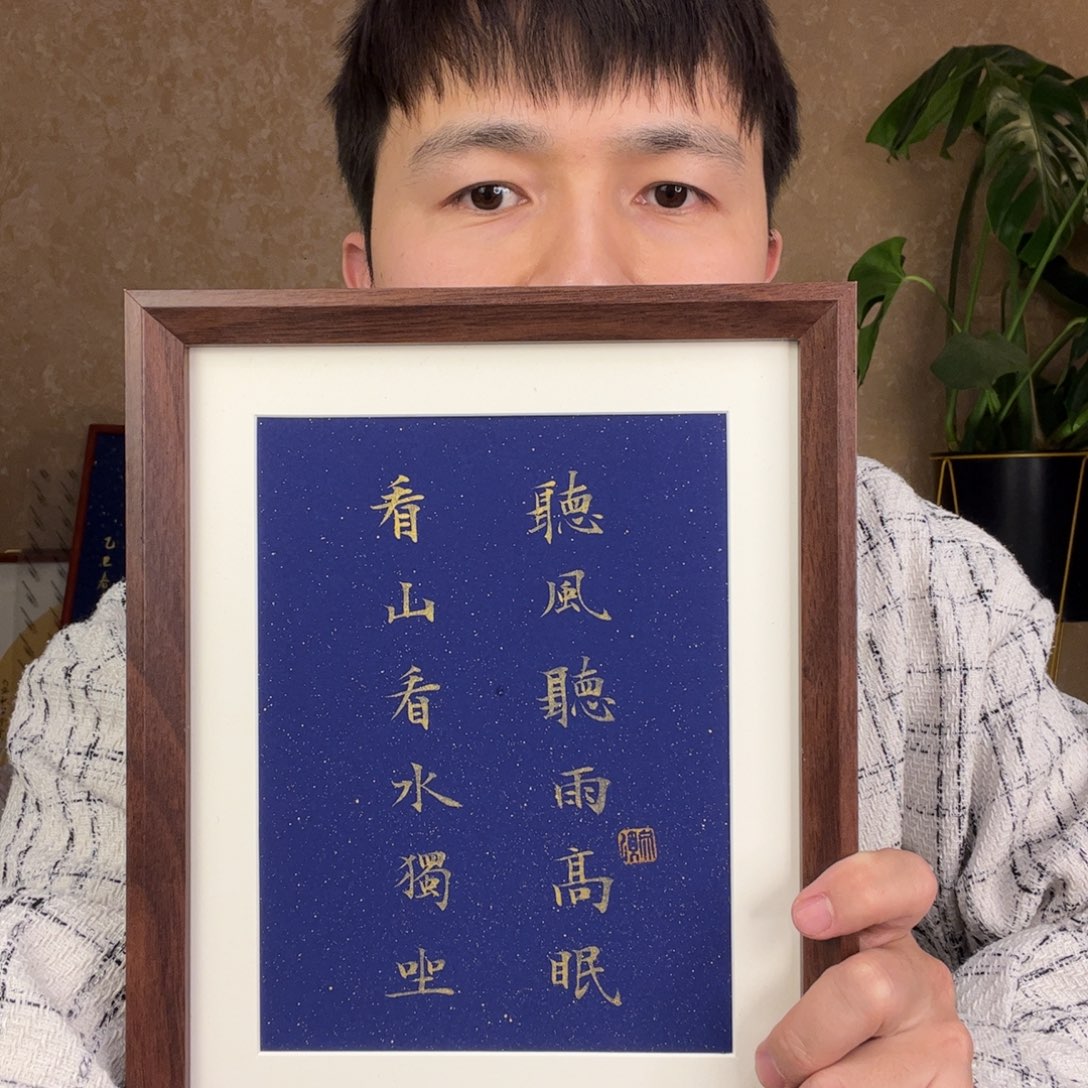 聽風聽雨高眠
看山看水獨坐
乙巳春